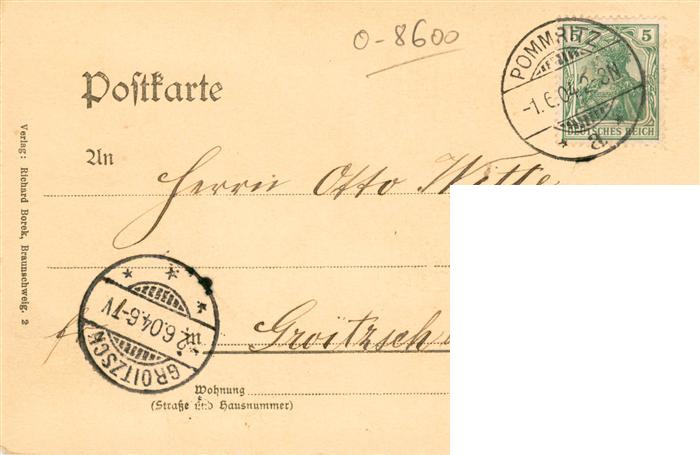 O-8600
POMMRITZ
-1.6.04.2-3N
a.
5 5
DEUTSCHES REICH
Poſtkarte
An
Herrn Otto Witte
Verlag: Richard Borek, Braunschweig. 2
2.6.04.6-7V
GROITZSCH
in Groitzsch
Wohnung
(Straße und Hausnummer)